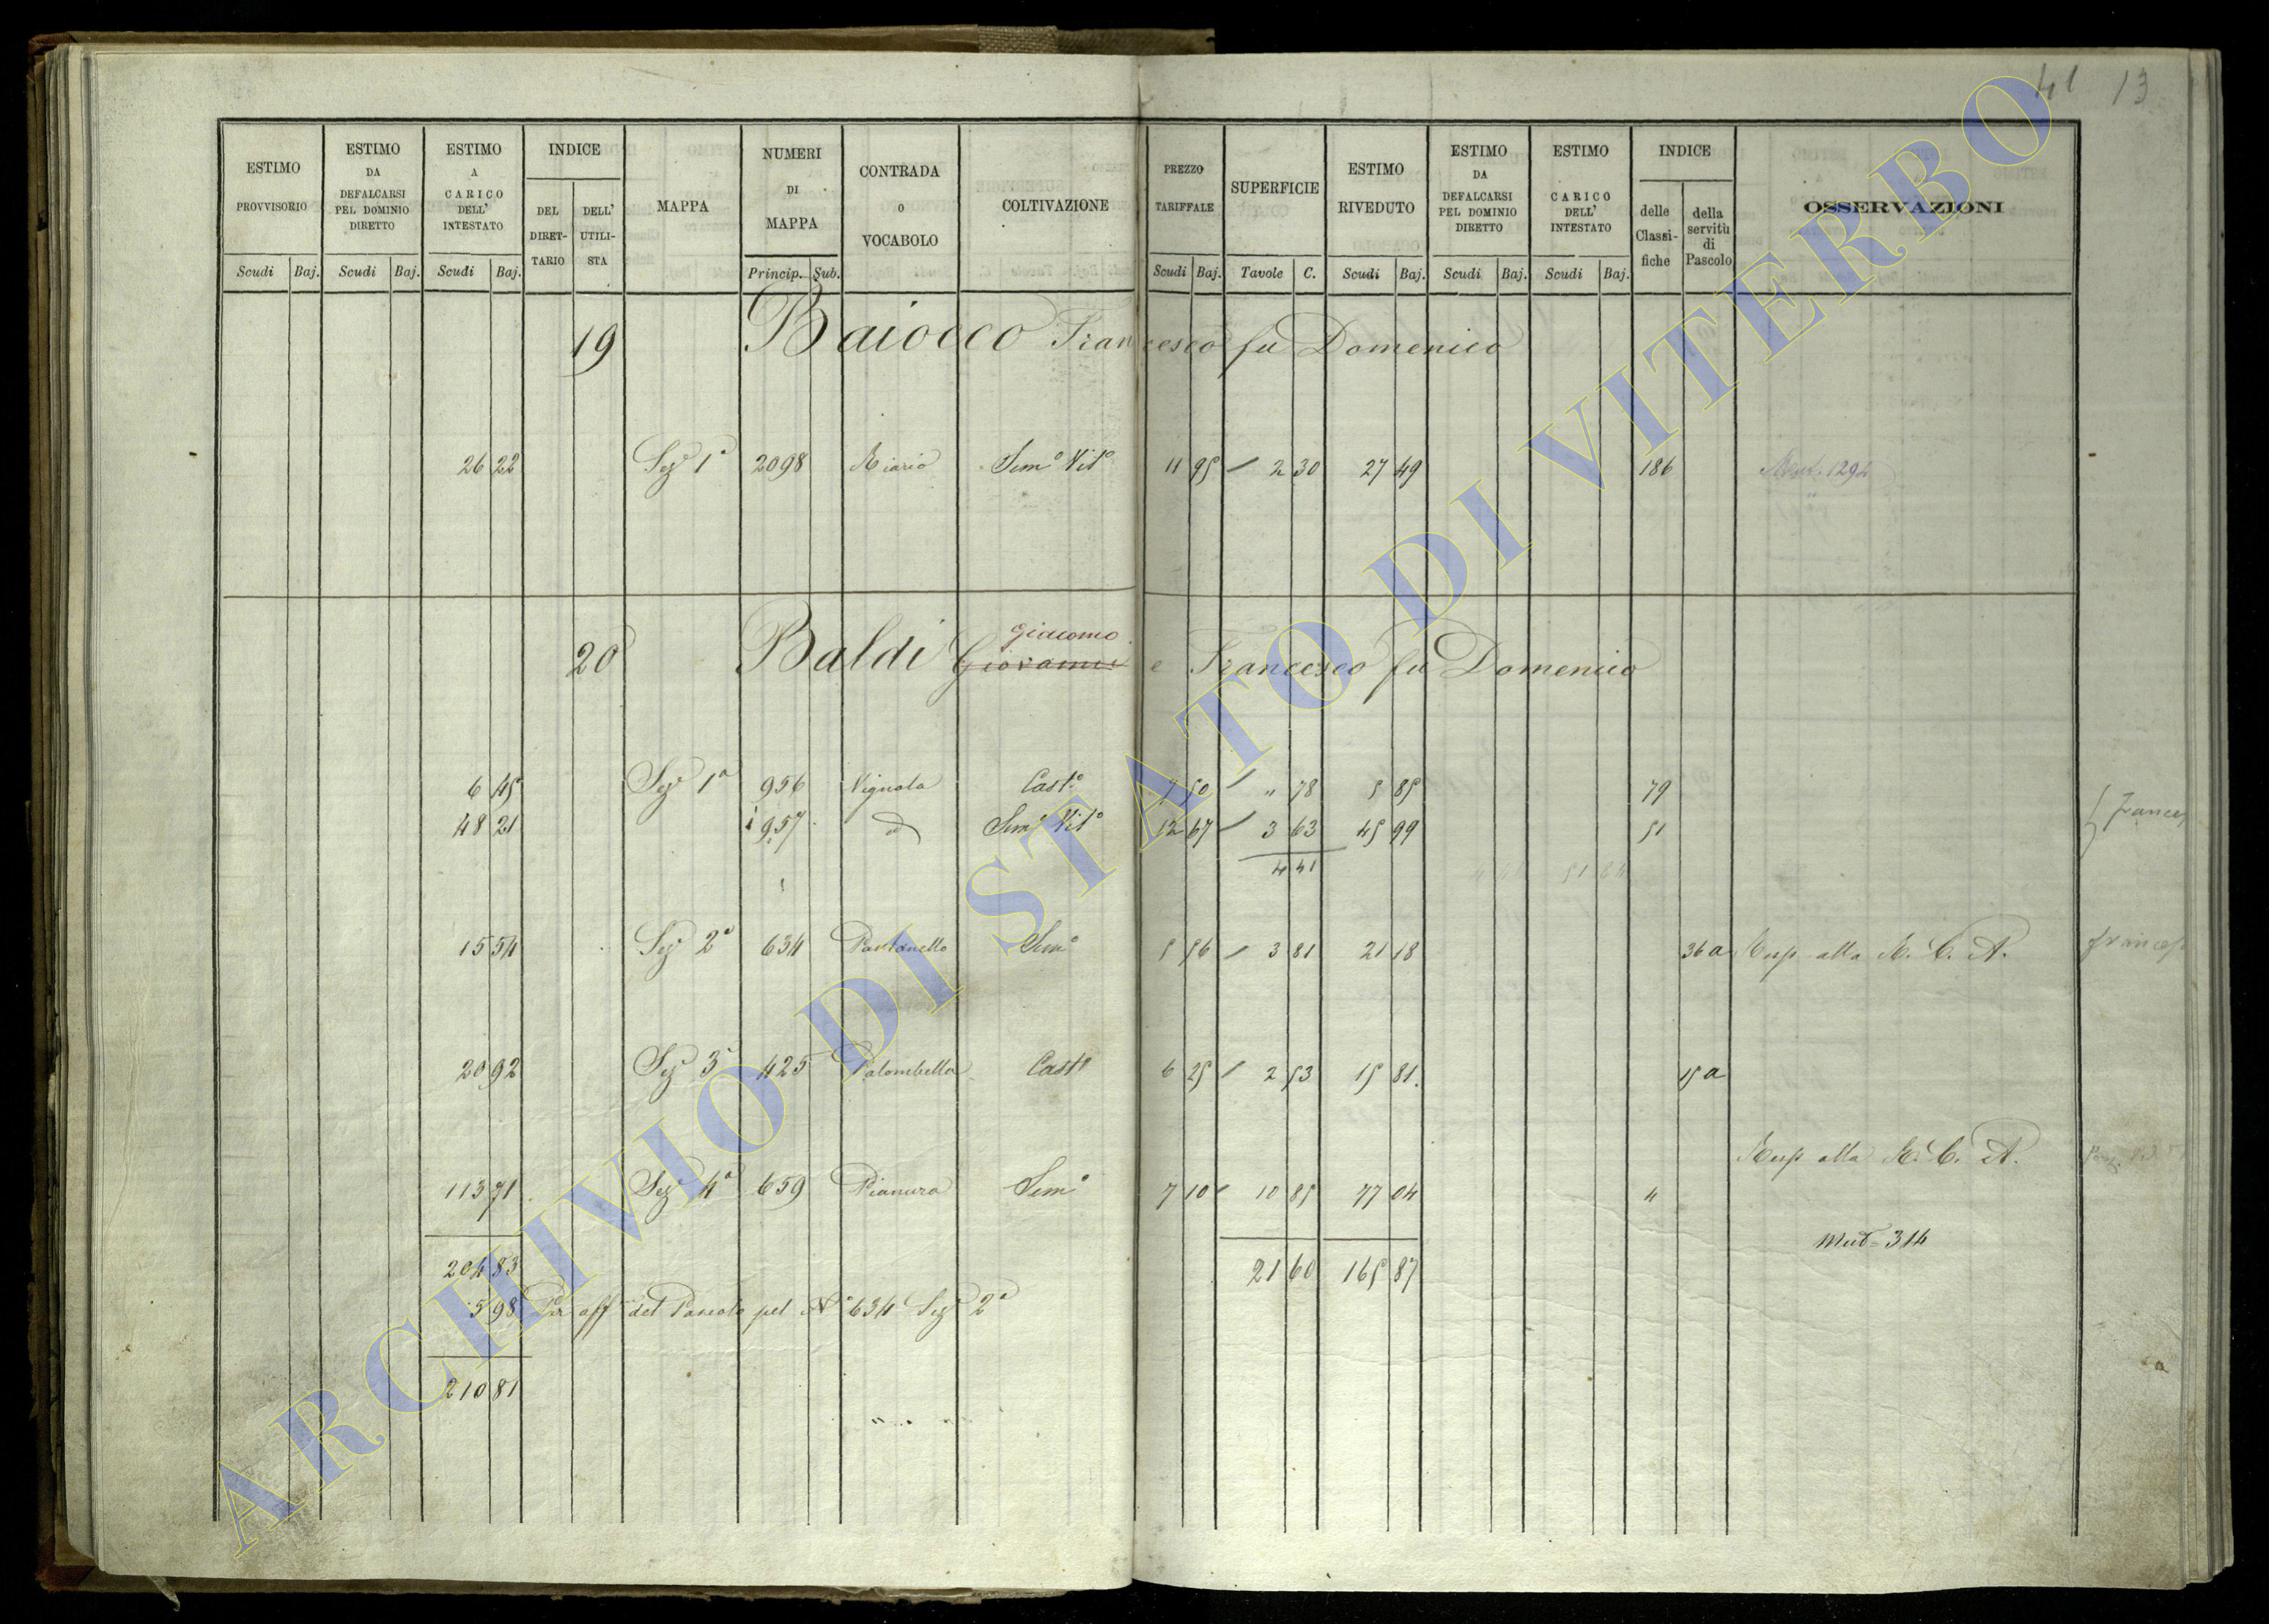 41 13
ESTIMO PROVVISORIO
ESTIMO DA DEFALCARSI PEL DOMINIO DIRETTO
ESTIMO A CARICO DELL' INTESTATO
INDICE
DEL DIRET-TARIO
DELL' UTILI-STA
MAPPA
NUMERI DI MAPPA
CONTRADA O VOCABOLO
COLTIVAZIONE
PREZZO TARIFFALE
SUPERFICIE
ESTIMO RIVEDUTO
ESTIMO DA DEFALCARSI PEL DOMINIO DIRETTO
ESTIMO A CARICO DELL' INTESTATO
INDICE
delle Classi-fiche
della servitù di Pascolo
OSSERVAZIONI
Scudi Baj. Scudi Baj. Scudi Baj. Princip. Sub. Scudi Baj. Tavole C. Scudi Baj. Scudi Baj. Scudi Baj.
19 Baiocco Francesco fu Domenico
26 22 Sez.e 1a 2098 Riario Sem.o Vit.o 11 95 2 30 27 49 186 Mut. 1294
Giacomo
20 Baldi Giovanni e Francesco fu Domenico
6 45 Sez.e 1a 956 Vignola Cast.o 7 50 " 78 5 85 79
48 21 957 d Sem.o Vit.o 12 67 3 63 45 99 51
4 41
15 54 Sez.e 2a 634 Pantanello Sem.o 5 56 3 81 21 18 36 a Resp alla R. C. A.
20 92 Sez.e 3a 425 Palombella Cast.o 6 25 2 53 15 81 15 a
Resp alla R. C. A.
113 71 Sez.e 4a 659 Pianura Sem.o 7 10 10 85 77 04 4
Mut = 314
204 83 21 60 165 87
5 98 Per aff del Pascolo pel N.o 634 Sez.e 2a
210 81
ARCHIVIO DI STATO DI VITERBO